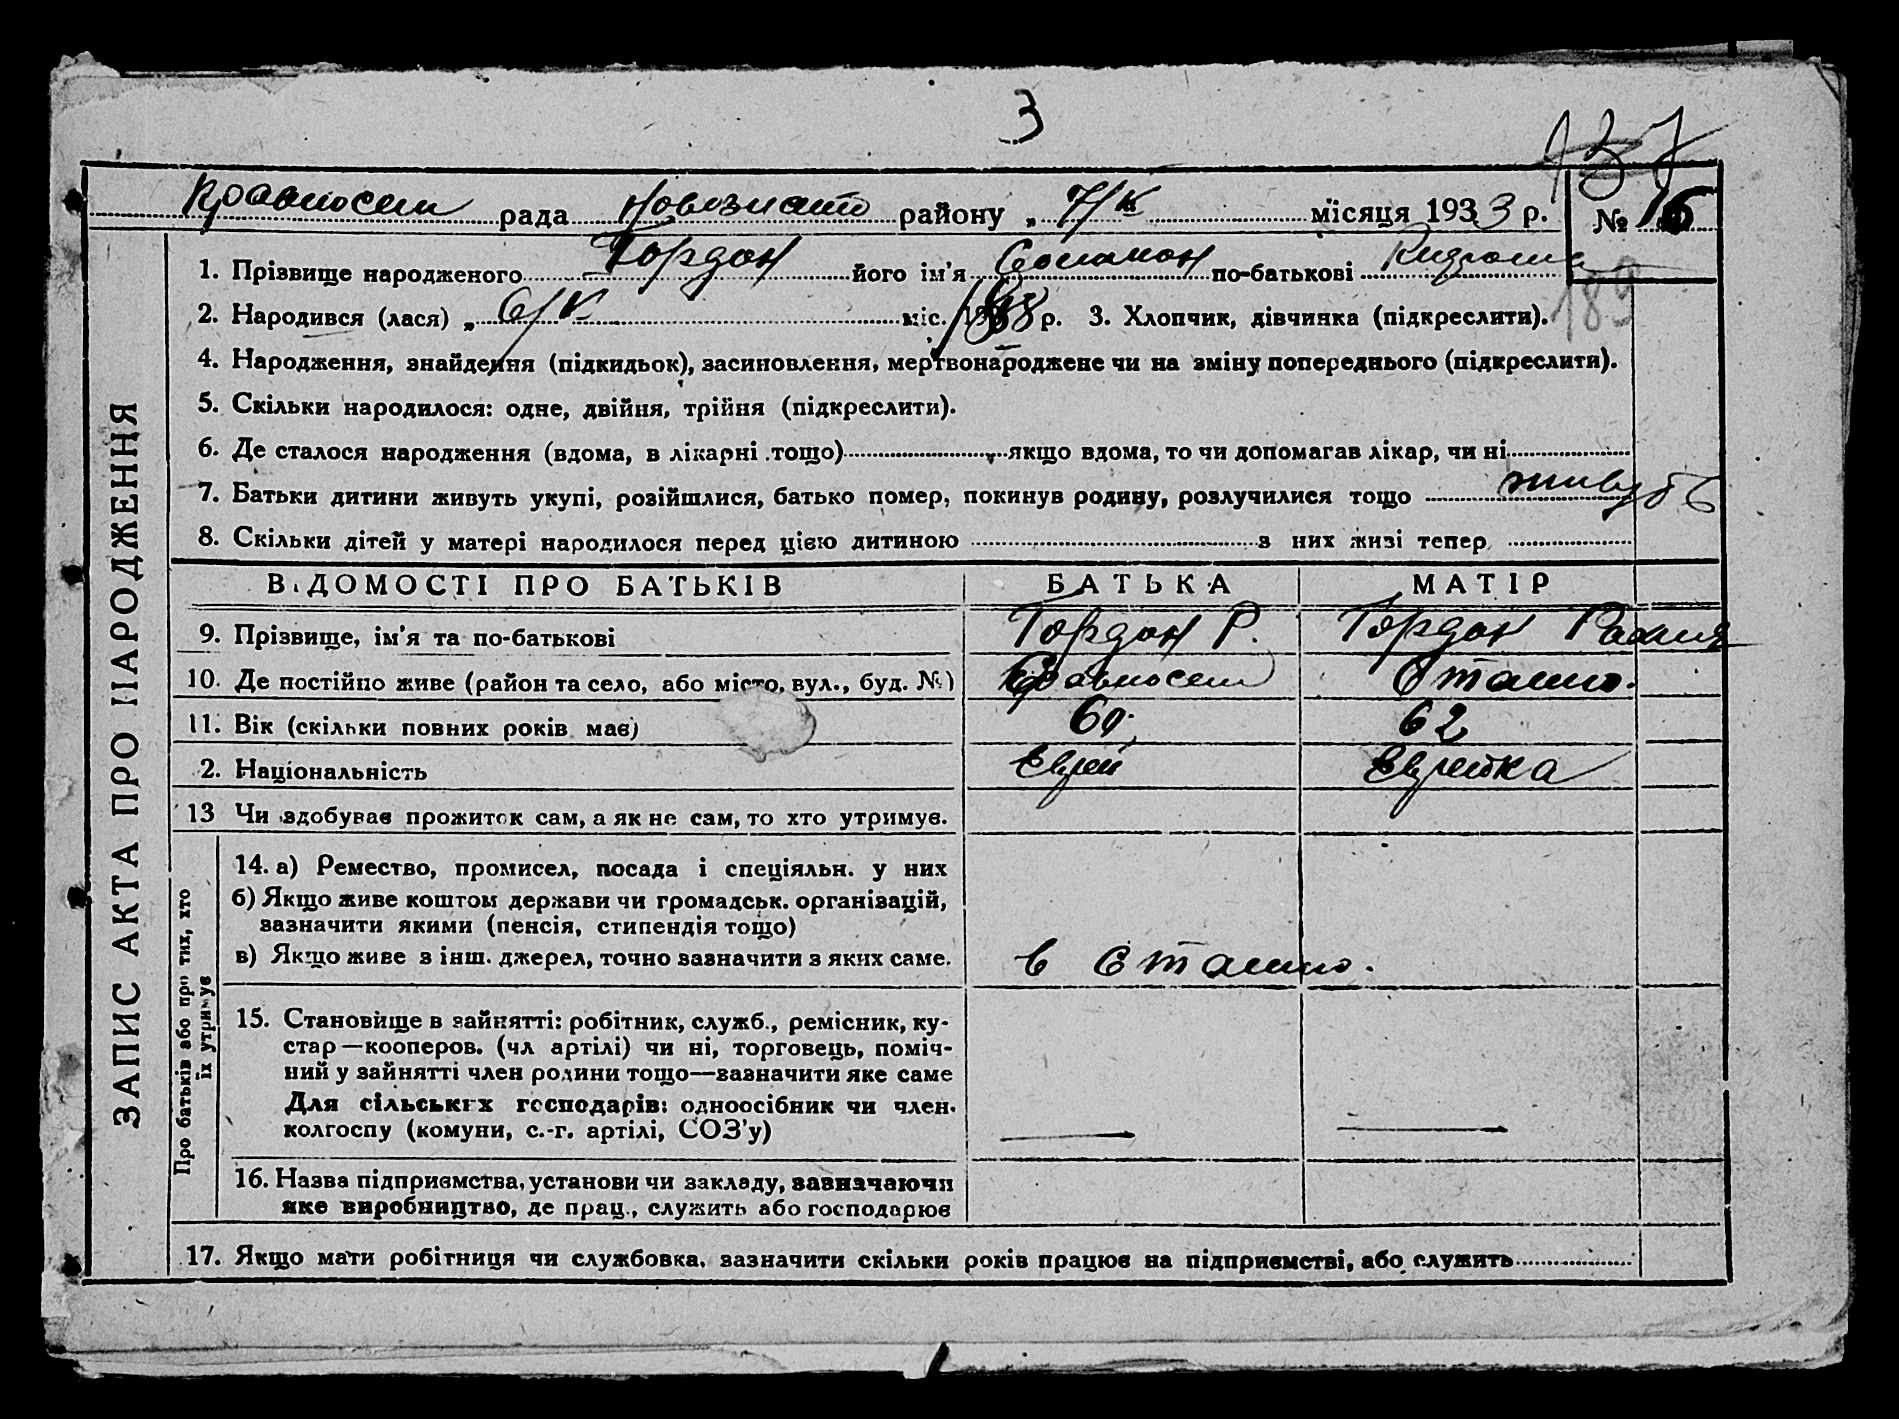 3
137
Кравносели рада районy „ 7/V місяця 1933 р. № 16
1. Прізвище народженого Гордон його ім'я Соломон по-батькові
189
2. Народився (лася) „ 6/V міс. р. 3. Хлопчик, дівчинка (підкреслити).
4. Народження, знайдення (підкидьок), засиновлення, мертвонароджене чи на зміну попереднього (підкреслити).
5. Скільки народилося: одне, двійня, трійня (підкреслити).
6. Де сталося народження (вдома, в лікарні тощо) якщо вдома, то чи допомагав лікар, чи ні
7. Батьки дитини живуть укупі, розійшлися, батько помер, покинув родину, розлучилися тощо живуть
8. Скільки дітей у матері народилося перед цією дитиною з них живі тепер
ВІДОМОСТІ ПРО БАТЬКІВ БАТЬКА МАТІР
9. Прізвище, ім'я та по-батькові Гордон Р. Гордон
10. Де постійно живе (район та село, або місто, вул., буд. №)
11. Вік (скільки повних років має) 60. 62
2. Національність Еврей Еврейка
13 Чи здобуває прожиток сам, а як не сам, то хто утримує.
14. а) Ремество, промисел, посада і спеціяльн. у них
б) Якщо живе коштом держави чи громадськ. організацій,
зазначити якими (пенсія, стипендія тощо)
в) Якщо живе з інш. джерел, точно зазначити з яких саме.
15. Становище в зайнятті: робітник, служб., ремісник, ку-
стар—кооперов. (чл артілі) чи ні, торговець, поміч-
ний у зайнятті член родини тощо—зазначити яке саме
Для сільських господарів: одноосібник чи член.
колгоспу (комуни, с.-г. артілі, СОЗ'у)
16. Назва підприємства, установи чи закладу, зазначаючи
яке виробництво, де прац., служить або господарює
17. Якщо мати робітниця чи службовка, зазначити скільки років працює на підприємстві, або служить
ЗАПИС АКТА ПРО НАРОДЖЕННЯ
Про батьків або про тих, хто
їх утримує